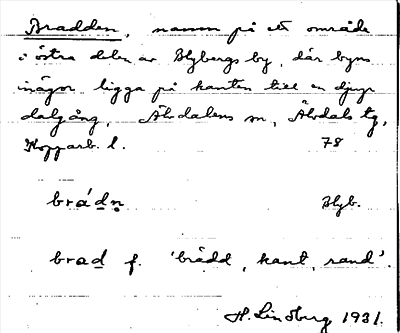 Bradden, namn på ett område
i östra delen av Blybergs by, där byns
inägor ligga på kanten till en djup
dalgång, Älvdalens sn, Älvdals tg,
Kopparb. l. 78
brádn̥ Blyb.
brad f. 'brädd, kant, rand'.
H. Lindberg 1931.